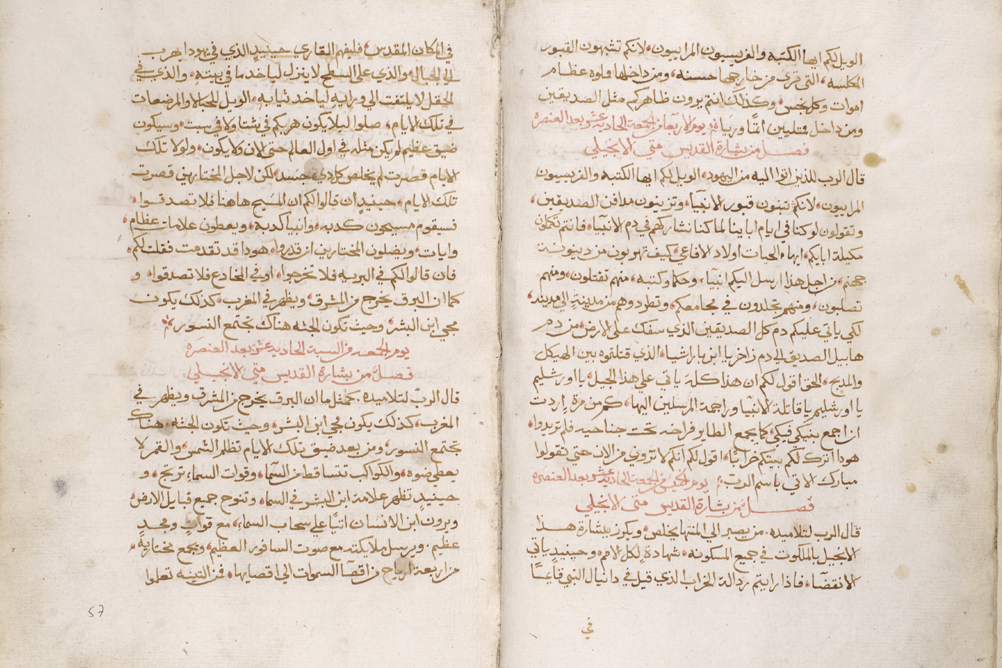 الويل لكم ايها الكتبة والفريسيون المرايون لانكم تشبهون القبور
المكلسه التي ترى من خارجها حسنه ومن داخلها ملوه عظام
اموات وكل نجس وكذلك انتم يرون ظاهركم مثل الصديقين
ومن داخل ممتليين اثما وريا يوم الاربعا من الجمعة الحاديه عشر بعد العنصره
فصل من بشارة القديس متى الانجيلي
قال الرب للذين اتوا اليه من اليهود الويل لكم ايها الكتبة والفريسيون
المرايون لانكم تبنون قبور الانبيا وتزينون مدافن الصديقين
وتقولون لو كنا في ايام اباينا لما كنا نشاركهم في دم الانبيا فانتم تكملون
مكيلة ابايكم ايها الحيات اولاد الافاعي كيف تهربون من دينونة
جهنم من اجل هذا ارسل اليكم انبيا وحكما وكتبه منهم تقتلون ومنهم
تصلبون ومنهم تجلدون في مجامعكم وتطردوهم من مدينة الى مدينه
لكي ياتي عليكم دم كل الصديقين الذي سفك على الارض من دم
هابيل الصديق الى دم زاخريا ابن باراشيا الذي قتلتوه بين الهيكل
والمدبح الحق اقول لكم ان هذا كله ياتي على هذا الجيل يا اورشليم
يا اورشليم يا قاتلة الانبيا وراجمة المرسلين اليها كم من مره اردت
ان اجمع بنيكي فيكي كما يجمع الطاير فراخه تحت جناحيه فلم تريدوا
هودا اترك لكم بيتكم خرابا اقول لكم انكم لا تروني من الان حتى تقولوا
مبارك الاتي باسم الرب يوم الخميس من الجمعة الحاديه عشر بعد العنصره
فصل من بشارة القديس متى الانجيلي
قال الرب لتلاميده من يصبر الى المنتها يخلص ويكرز ببشارة هذا
الانجيل بالملكوت في جميع المسكونه شهادة لكل الامم وحينيد ياتي
الانقضا فاذا رايتم ردالة الخراب الذي قيل في دانيال النبي قايما
في
في المكان المقدس فليفهم القاري حينيد الذي في يهودا يهرب
الى الجبال والذي على السطح لا ينزل لياخد ما في بيته والذي في
الحقل لا يلتفت الى ورايه لياخد تيابه الويل للحبالا والمرضعات
في تلك الايام صلوا ليلا يكون هربكم في شتا ولا في سبت وسيكون
ضيق عظيم لم يكن مثله في اول العالم حتى الان ولا يكون ولولا تلك
الايام قصرت لم يخلص كل دي جسد لكن لاجل المختارين قصرت
تلك الايام حينيد ان قالوا لكم ان المسيح هاهنا فلا تصدقوا
فسيقوم مسيحيون كدبه وانبيا كدبة ويعطون علامات عظام
وايات ويضلون المختارين ان قدروا هودا قد تقدمت فقلت لكم
فان قالوا لكم في البريه فلا تخرجوا او في المخادع فلا تصدقوا و
كما ان البرق يخرج من المشرق ويظهر في المغرب كدلك يكون
مجي ابن البشر وحيث تكون الجثه هناك تجتمع النسور
يوم الجمعه من السبة الحاديه عشر بعد العنصره
فصل من بشارة القديس متى الانجيلي
قال الرب لتلاميده كمثل ما ان البرق يخرج من المشرق ويظهر في
المغرب كدلك يكون مجي ابن البشر وحيث تكون الجثه هناك
تجتمع النسور ومن بعد ضيق تلك الايام تظلم الشمس والقمر لا
يعطي ضوه والكواكب تتساقط من السما وقوات السما ترتج و
حينيد تظهر علامة ابن البشر في السما وتنوح جميع قبايل الارض
ويرون ابن الانسان اتيا على سحاب السما مع قوات ومجد
عظيم ويرسل ملايكته مع صوت السافور العظيم ويجمع مختاريه
من اربعة ارياح من اقصا السموات الى اقصايها فمن التينه تعلموا
57